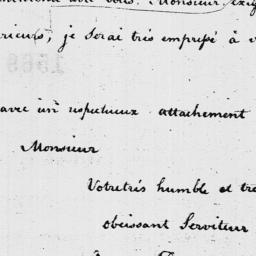 Monsieur, exig
rieurs, je serai très empressé à v
avec un respectueux attachement
Monsieur
Votre très humble et tre
obeissant Serviteur